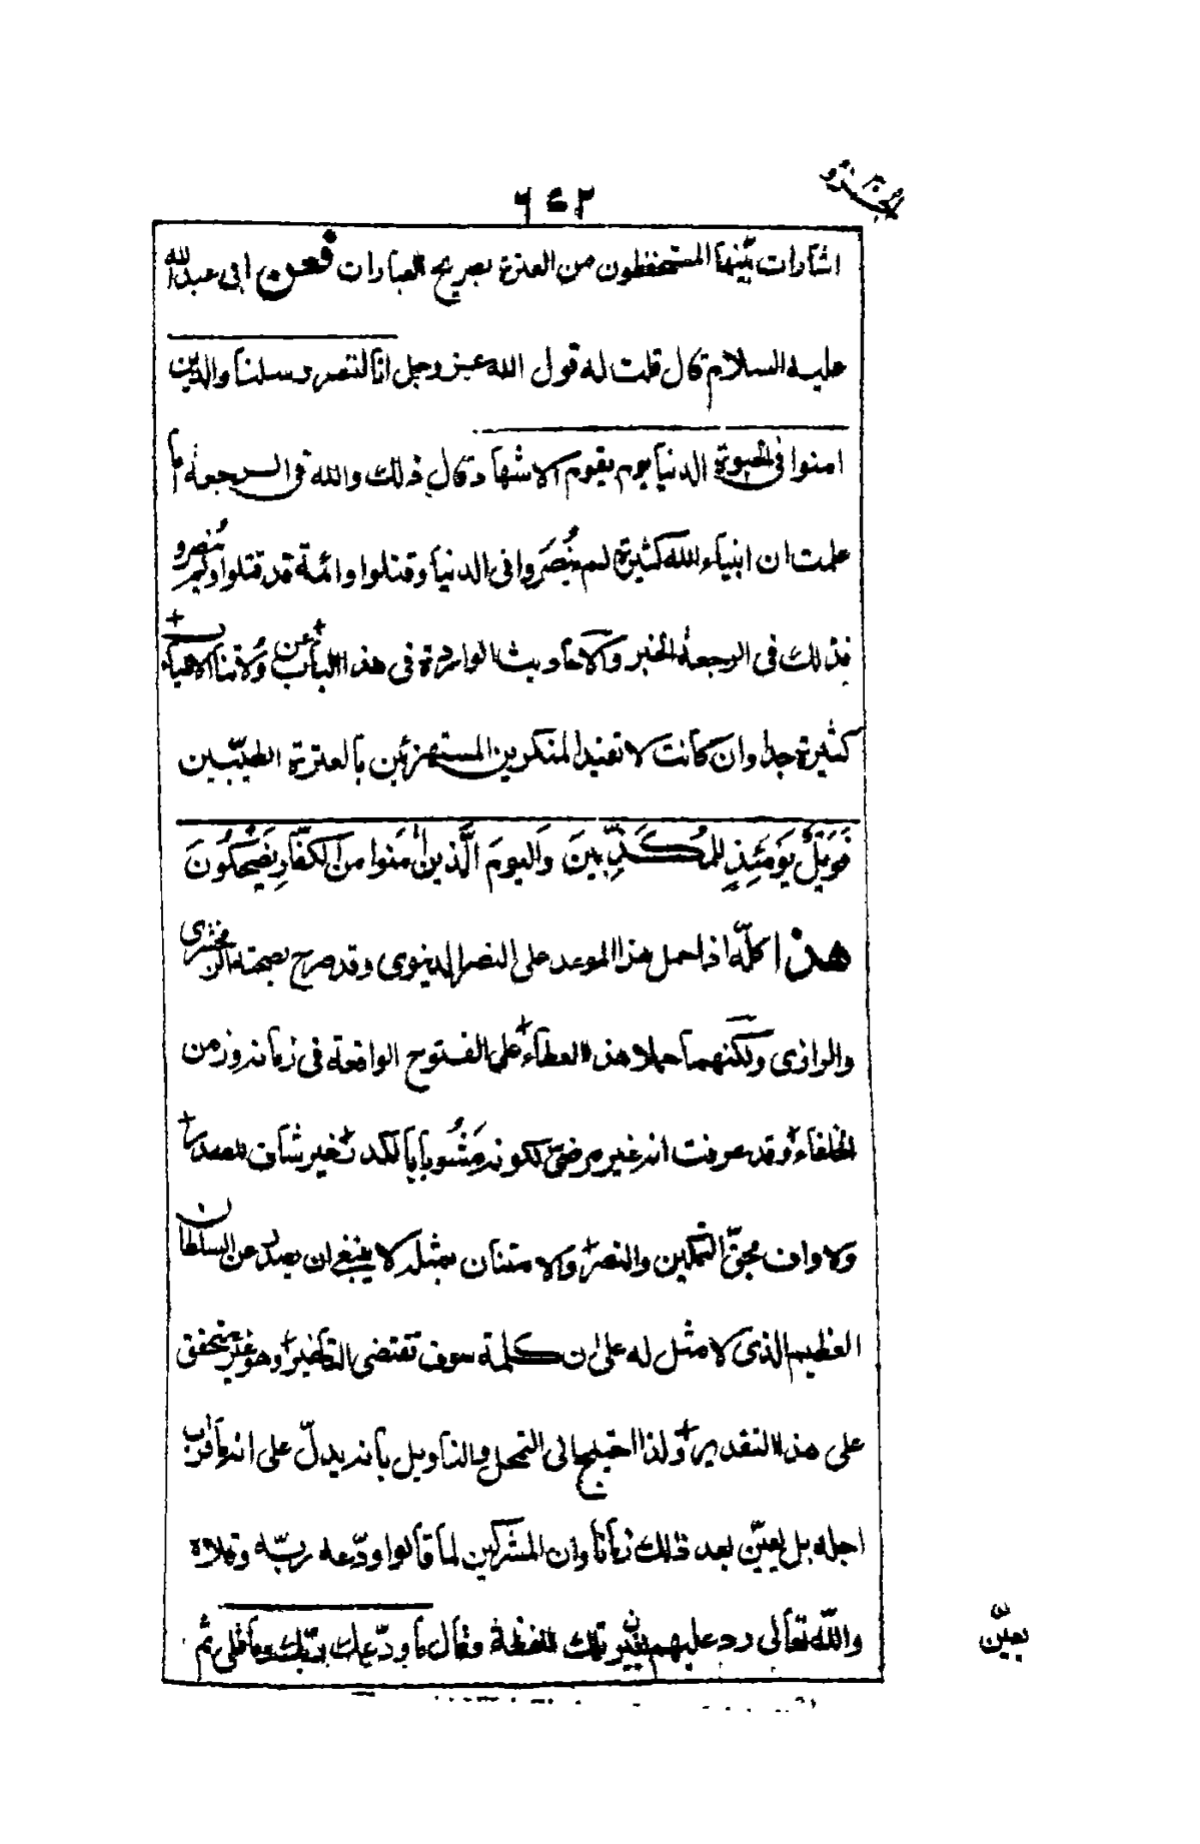 ٦٤٢
اشارات بيّنها المستحفظون من العترة بصريح العبارات فعن ابى عبد الله
عليه السلام قال قلت له قول الله عز وجل انا لننصر رسلنا والذين
امنوا فى الحيوة الدنيا يوم يقوم الاشهاد قال ذلك والله فى الرجعة أما
علمت ان انبياء الله كثيرة لم يُنصَروا فى الدنيا وقتلوا وائمة قد قتلوا ولم يُنصروا
فذلك فى الرجعة الخبر والاحاديث الواردة فى هذا الباب عن وُلاتنا
كثيرة جدا وان كانت لا تفيد المنكرين المستهزئين بالعترة الطيّبين
فَوَيْلٌ يَوْمَئِذٍ لِلمُكَذِّبِينَ وَاليومَ الَّذين اٰمَنوا من الكفَّارِ يَضْحَكُونَ
هذا كلّه اذا حمل هذا الموعد على النصر الدنيوى وقد صرح بصحته الزمخشرى
والرازى ولكنهما حملا هذا العطاء على الفتوح الواقعة فى زمانه وزمن
الخلفاء وقد عرفت انه غير مرضىّ لكونه مَشُوبا بالكدر غير شاف للصدر
ولا واف بحقّ التمكين والنصر والامتنان بمثله لا ينبغى ان يصدر عن السلطان
العظيم الذى لا مثل له على ان كلمة سوف تقتضى التاخير وهو غير متحقق
على هذا التقدير ولذا احتيج الى التمحل والتاويل بانه يدلّ على انه ما قرب
اجله بل يعيّن بعد ذلك زمانا وان المشركين لما قالوا ودّعه ربّه وقلاه
والله تعالى رد عليهم بعين تلك اللفظة وقال ما ودّعك ربّك وما قلى ثم
يعيّن